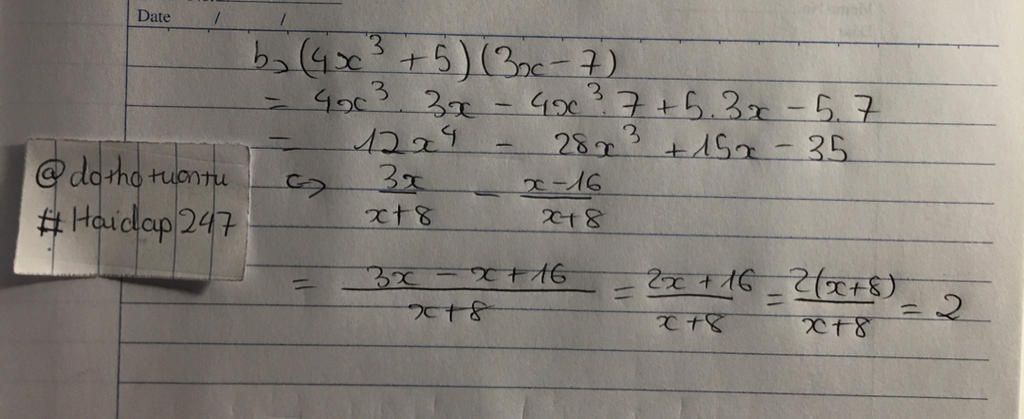 Date / /
b, (4x³ + 5)(3x - 7)
= 4x³ . 3x - 4x³ . 7 + 5 . 3x - 5 . 7
= 12x⁴ - 28x³ + 15x - 35
@dothotuantu
#Hoidap247
3x/(x+8) - (x-16)/(x+8)
= (3x - x + 16)/(x+8) = (2x + 16)/(x+8) = 2(x+8)/(x+8) = 2